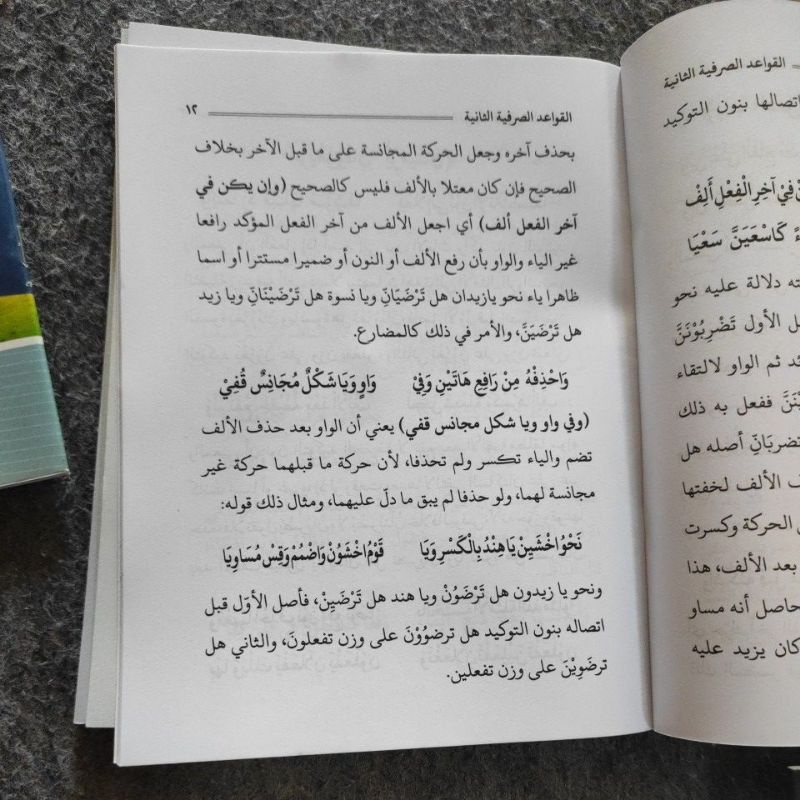 القواعد الصرفية الثانية
اتصالها بنون التوكيد
فِيْ آخِرِ الْفِعْلِ أَلِفْ
كَاسْعَيَنَّ سَعْيَا
ته دلالة عليه نحو
ل الأول تَضْرِبُوْنَنَّ
ثم الواو لالتقاء
ففعل به ذلك
أصله هل
ف الألف لخفتها
الحركة وكسرت
بعد الألف، هذا
حاصل أنه مساو
كان يزيد عليه
القواعد الصرفية الثانية ١٢
بحذف آخره وجعل الحركة المجانسة على ما قبل الآخر بخلاف
الصحيح فإن كان معتلا بالألف فليس كالصحيح (وإن يكن في
آخر الفعل ألف) أي اجعل الألف من آخر الفعل المؤكد رافعا
غير الياء والواو بأن رفع الألف أو النون أو ضميرا مستترا أو اسما
ظاهرا ياء نحو يازيدان هل تَرْضَيَانِّ ويا نسوة هل تَرْضَيْنَانِّ ويا زيد
هل تَرْضَيَنَّ، والأمر في ذلك كالمضارع.
وَاحْذِفْهُ مِنْ رَافِعِ هَاتَيْنِ وَفِيْ وَاوٍ وَيَا شَكْلٌ مُجَانِسٌ قُفِيْ
(وفي واو ويا شكل مجانس قفي) يعني أن الواو بعد حذف الألف
تضم والياء تكسر ولم تحذفا، لأن حركة ما قبلهما حركة غير
مجانسة لهما، ولو حذفا لم يبق ما دلّ عليهما، ومثال ذلك قوله:
نَحْوُ اخْشَيِنْ يَا هِنْدُ بِالْكَسْرِ وَيَا قَوْمُ اخْشَوُنْ وَاضْمُمْ وَقِسْ مُسَاوِيَا
ونحو يا زيدون هل تَرْضَوُنْ ويا هند هل تَرْضَيِنْ، فأصل الأوّل قبل
اتصاله بنون التوكيد هل ترضوُوْنَ على وزن تفعلونَ، والثاني هل
ترضَوِيْنَ على وزن تفعلين.